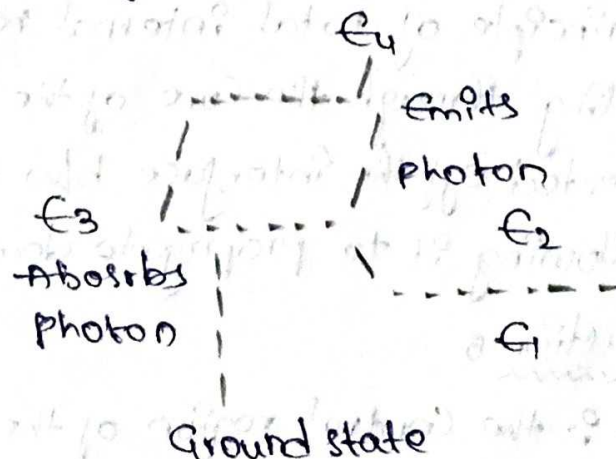 E4
Emits
photon
E3
E2
Abosrbs
photon
E1
Ground state